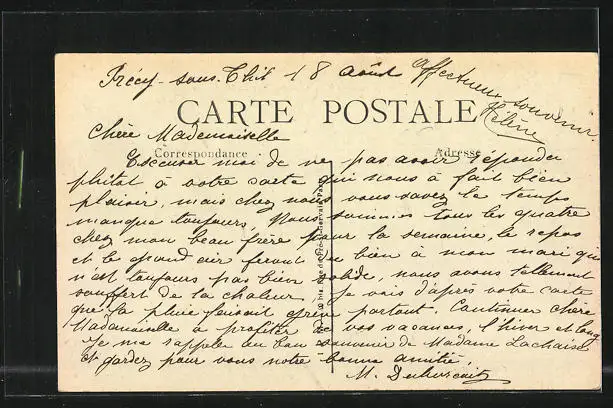 Précy-sous-Thil 18 Août
Affectueux souvenir.
Hélène
CARTE POSTALE
Chère Mademoiselle
Correspondance
Adresse
Excuser moi de ne pas avoir répondu
plutot a votre carte qui nous a fait bien
plaisir, mais chez nous vous savez le temps
manque toujours. Nous sommes tous les quatre
chez mon beau frère pour la semaine, le repos
et le grand air feront du bien à mon mari qui
n'est toujours pas bien solide, nous avons tellement
souffert de la chaleur. Je vois d'après votre carte
que la pluie faisait grève partout. Continuer chère
Mademoiselle a profiter de vos vacances, l'hiver est long
Je me rappelle au bon souvenir de Madame Lachaise
et gardez pour vous notre bonne amitié.
M.